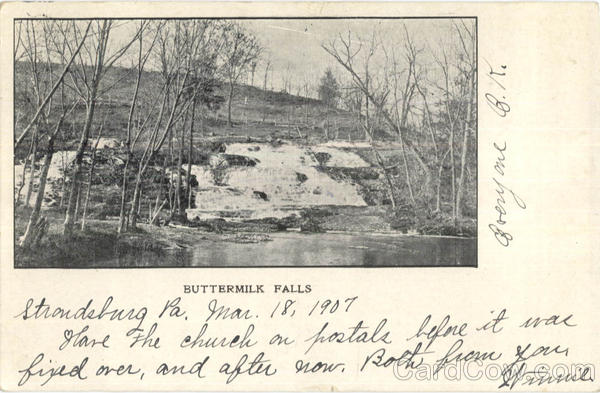 BUTTERMILK FALLS
Stroudsburg Pa. Mar. 18, 1907
Have The church on postals before it was
fixed over, and after now. Both, from you,
Winnie.
Everyone O.K.
CardCow.com